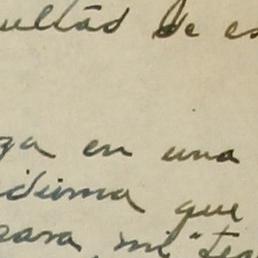 ultad de es
ga en una
idioma que
para mi "te